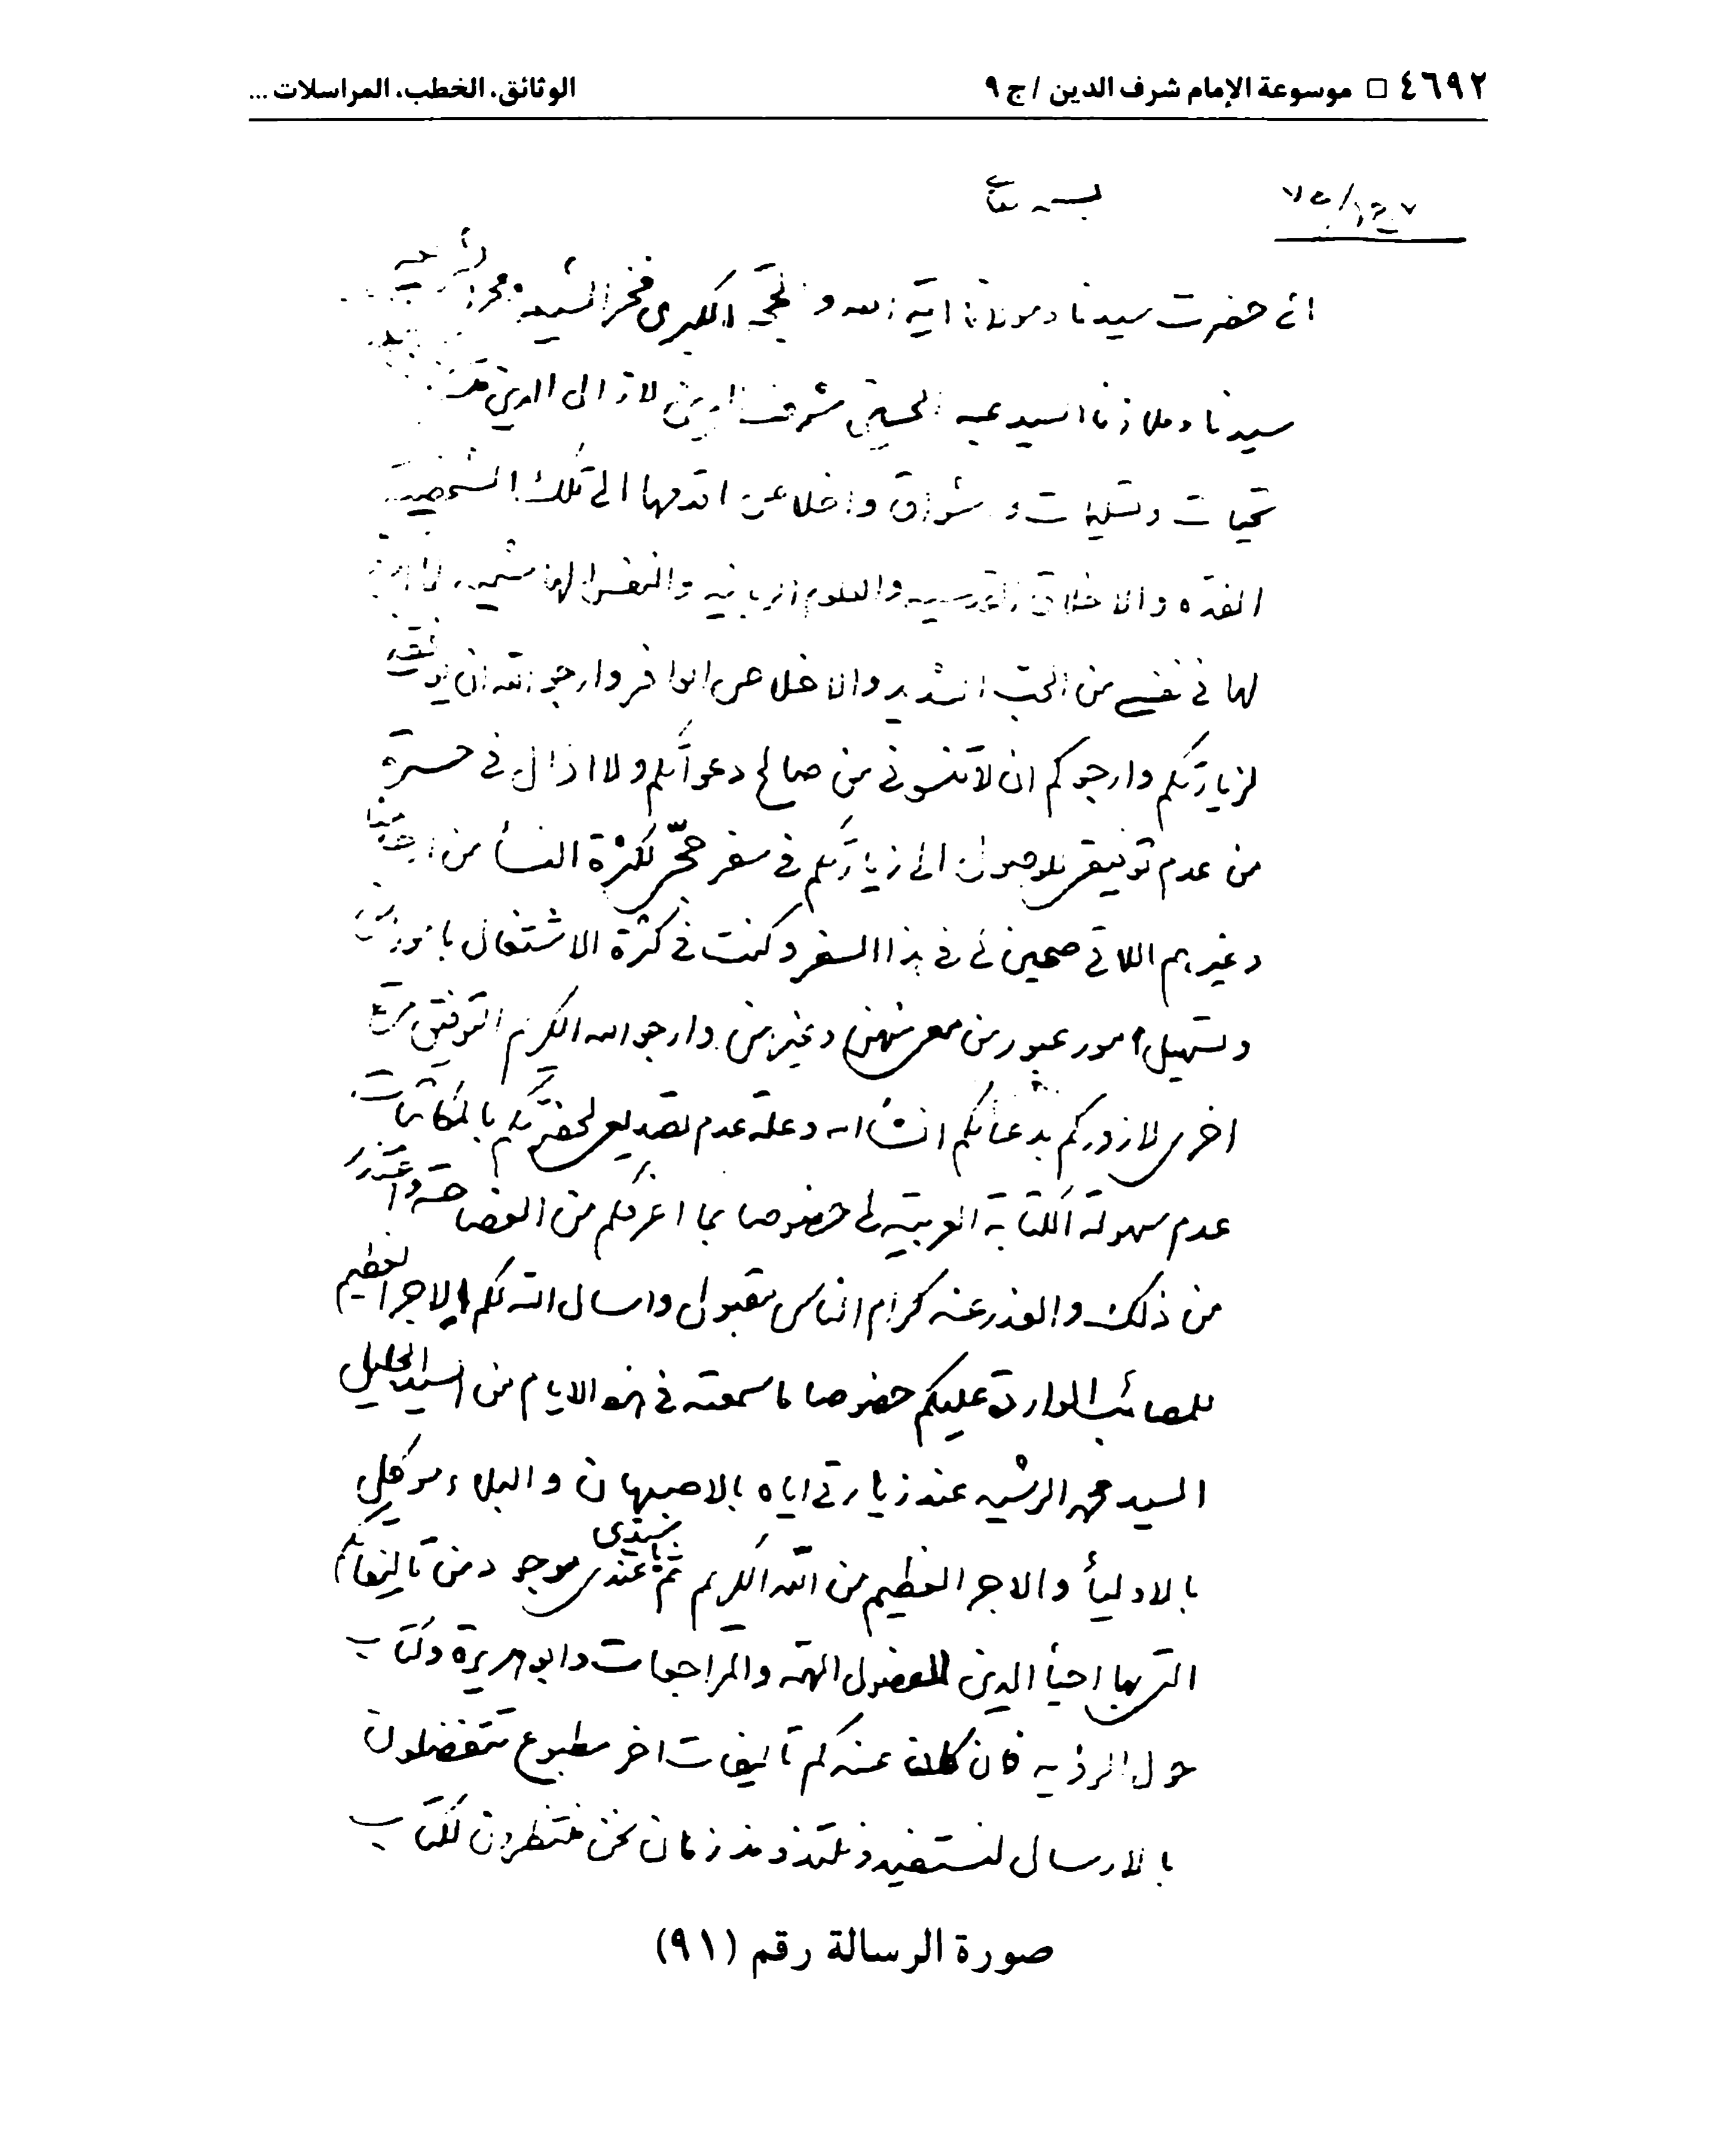 ٤٦٩٢ □ موسوعة الإمام شرف الدين / ج ٩
الوثائق، الخطب، المراسلات ...
بسمه تعالى
الى حضرت سيدنا ومولانا اية الله و الحجة الكبرى فخر الشيعه
سيدنا وملاذنا السيد عبد الحسين شرف الدين لازال الدين
تحيات وتسليمات و اشواق واخلاص اقدمها الى تلك الشخصية
الفذه والاخلاق القدسيه والعلوم الربانيه والنفس الهاشميه
لها في نفسي من الحب الشديد والاخلاص الوافر وارجو الله ان يوفقني
لزيارتكم وارجوكم ان لا تنسوني من صالح دعواتكم ولا ازال في حسرة
من عدم توفيقي للوصول الى زيارتكم في سفر حجي لكثرة النسأ من
وغيرهم اللاتي صحبنني في هذا السفر وكنت في كثرة الاشتغال
وتسهيل امور عبور من معي منهن وغيرهن وارجو الله الكريم التوفيق مرة
اخرى لازوركم بدعائكم انشاء الله وعلة عدم تصديعي لحضرتكم بالمكاتبات
عدم سهولة الكتابة العربية لي خصوصا بما اعرفكم من الفصاحة واعتذر
من ذلك والعذر عند كرام الناس مقبول واسال الله لكم الاجر العظيم
للمصائب الواردة عليكم خصوصا ما سمعته في هذه الايام من السيد الجليل
السيد محمد الرشيد عند زيارتي اياه بالاصبهان والبلاء موكل
بالاوليأ والاجر العظيم من الله الكريم ثم عندي يا سيدي موجود من تاليفاتكم
التي بها احيأ الدين الفصول المهمه والمراجعات وابو هريرة وكتاب
حول الرؤيه فان كان عندكم تاليفات اخر مطبوع تتفضلون
بالارسال لنستفيد ونلتذ ومنذ زمان نحن منتظرون لكتاب
صورة الرسالة رقم (٩١)